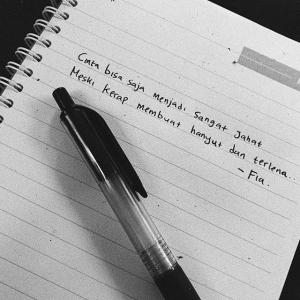 Cinta bisa saja menjadi sangat jahat
Meski kerap membuat hanyut dan terlena..
- Fia.